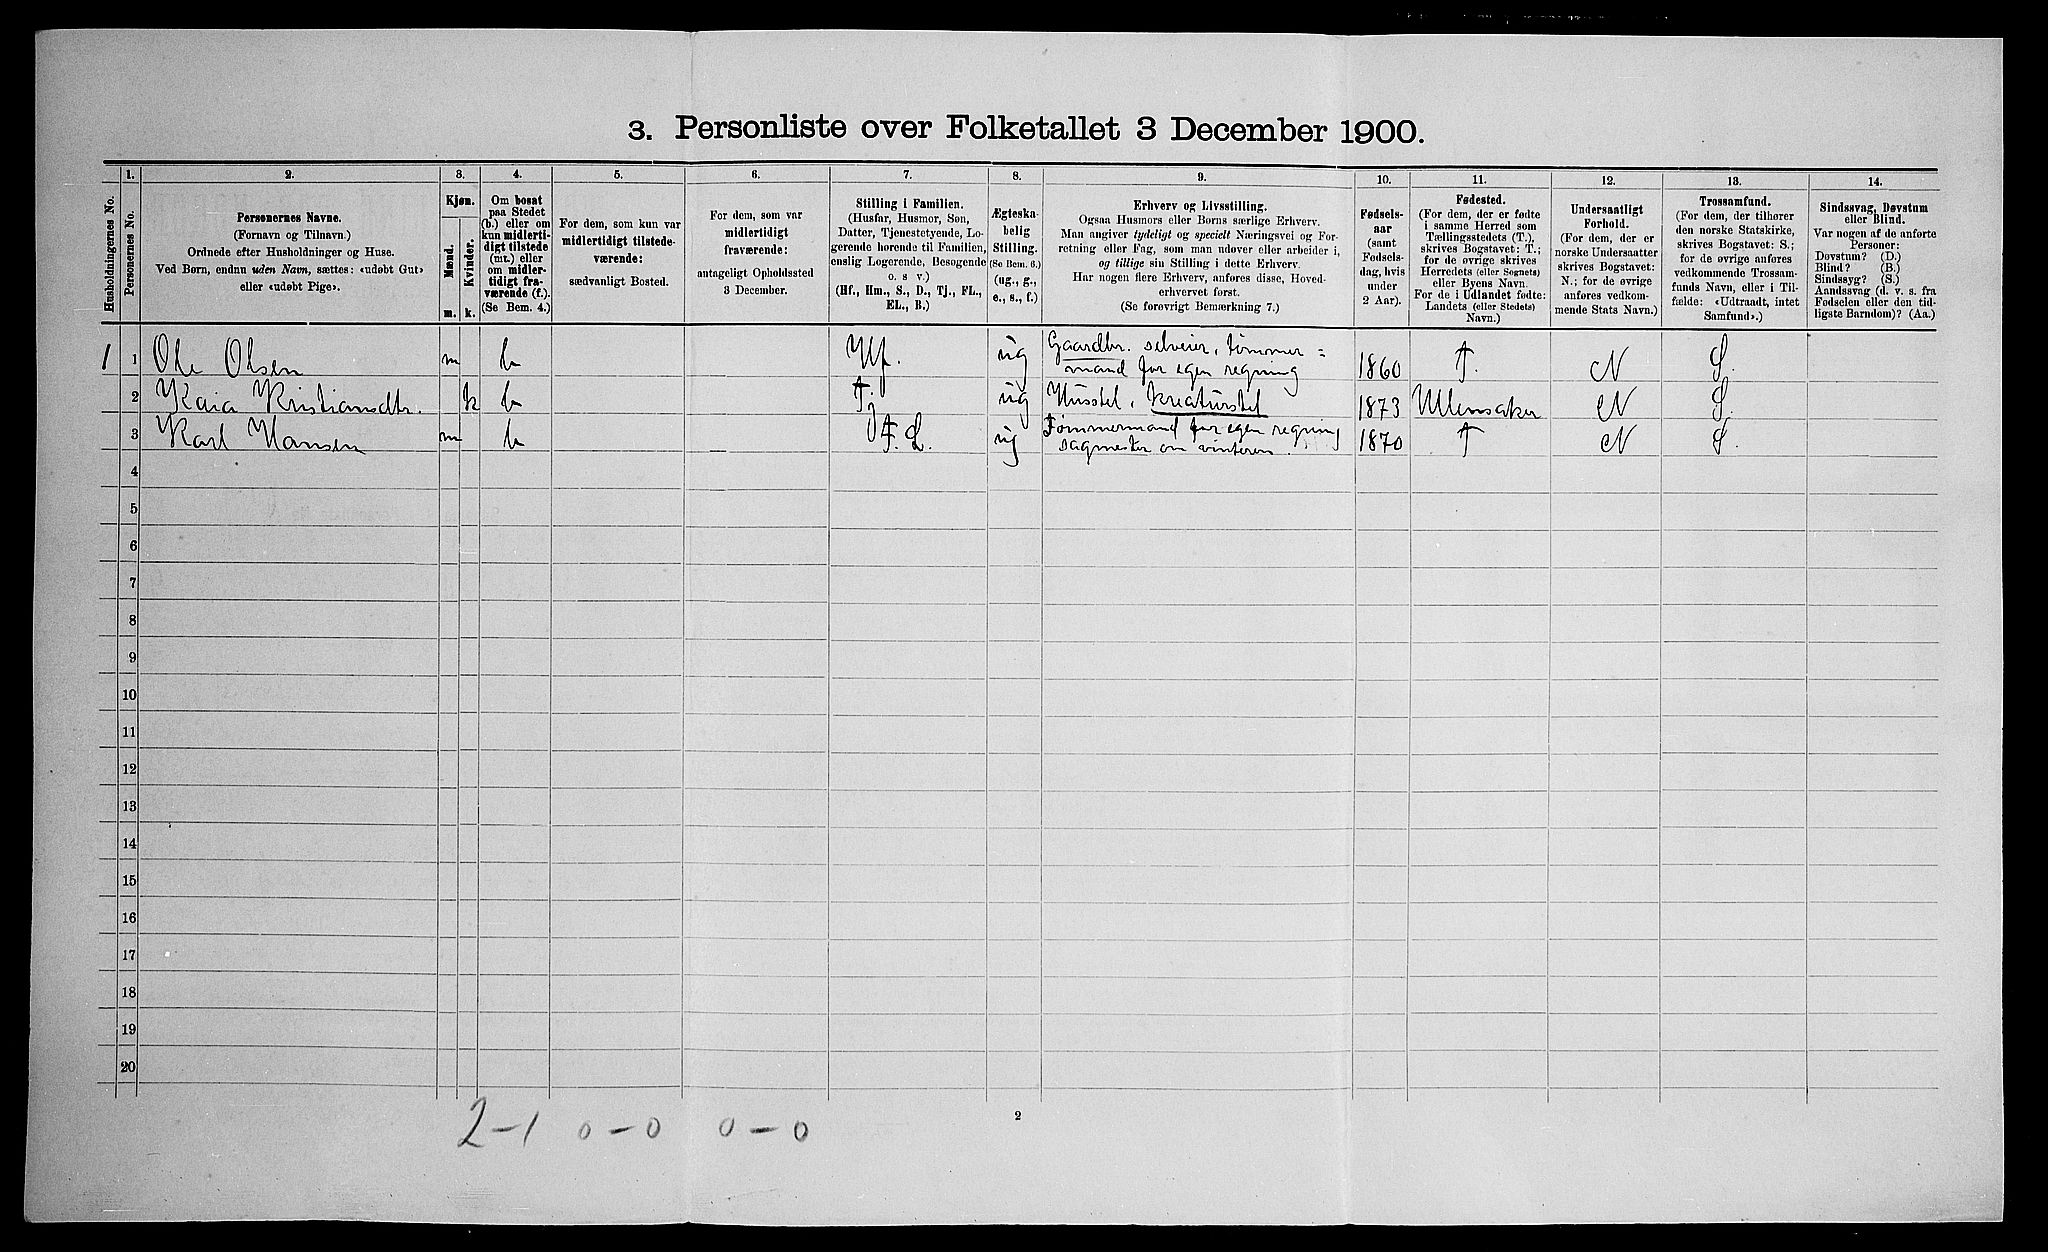 3. Personliste over Folketallet 3 December 1900.
Husholdningernes No.
1.
Personernes No.
2.
Personernes Navne.
(Fornavn og Tilnavn.)
Ordnede efter Husholdninger og Huse.
Ved Børn, endnu uden Navn, sættes: «udøbt Gut»
eller «udøbt Pige».
3.
Kjøn.
Mænd.
m.
Kvinder.
k.
4.
Om bosat
paa Stedet
(b.) eller om
kun midlerti-
digt tilstede
(mt.) eller
om midler-
tidigt fra-
værende (f.).
(Se Bem. 4.)
5.
For dem, som kun var
midlertidigt tilstede-
værende:
sædvanligt Bosted.
6.
For dem, som var
midlertidigt
fraværende:
antageligt Opholdssted
3 December.
7.
Stilling i Familien.
(Husfar, Husmor, Søn,
Datter, Tjenestetyende, Lo-
gerende hørende til Familien,
enslig Logerende, Besøgende
o. s v.)
(Hf., Hm., S., D., Tj., FL.,
EL., B.)
8.
Ægteska-
belig
Stilling.
(Se Bem. 6.)
(ug., g.,
e., s., f.)
9.
Erhverv og Livsstilling.
Ogsaa Husmors eller Børns særlige Erhverv.
Man angiver tydeligt og specielt Næringsvei og For-
retning eller Fag, som man udøver eller arbeider i,
og tillige sin Stilling i dette Erhverv.
Har nogen flere Erhverv, anføres disse, Hoved-
erhvervet først.
(Se forøvrigt Bemærkning 7.)
10.
Fødsels-
aar
(samt
Fødsels-
dag, hvis
under
2 Aar).
11.
Fødested.
(For dem, der er fødte
i samme Herred som
Tællingsstedets (T.),
skrives Bogstavet: T.;
for de øvrige skrives
Herredets (eller Sognets)
eller Byens Navn.
For de i Udlandet fødte:
Landets (eller Stedets)
Navn.)
12.
Undersaatligt
Forhold.
(For dem, der er
norske Undersaatter
skrives Bogstavet:
N.; for de øvrige
anføres vedkom-
mende Stats Navn.)
13.
Trossamfund.
(For dem, der tilhører
den norske Statskirke,
skrives Bogstavet: S.;
for de øvrige anføres
vedkommende Trossam-
funds Navn, eller i Til-
fælde: «Udtraadt, intet
Samfund».)
14.
Sindssvag, Døvstum
eller Blind.
Var nogen af de anførte
Personer:
Døvstum? (D.)
Blind? (B.)
Sindssyg? (S.)
Aandssvag (d. v. s. fra
Fødselen eller den tid-
ligste Barndom)? (Aa.)
1 1 Ole Olsen m b Hf. ug Gaardbr. selveier, tømmer=
mand for egen regning 1860 T. N S.
2 Kaia Kristiansdtr. k b T.J ug Husstel, kreaturstel 1873 Ullensaker N S.
3 Karl Hansen m b F. L. ug Tømmermand for egen regning
sagmester om vinteren. 1870 T N S.
4
5
6
7
8
9
10
11
12
13
14
15
16
17
18
19
20
2-1 0-0 0-0
2